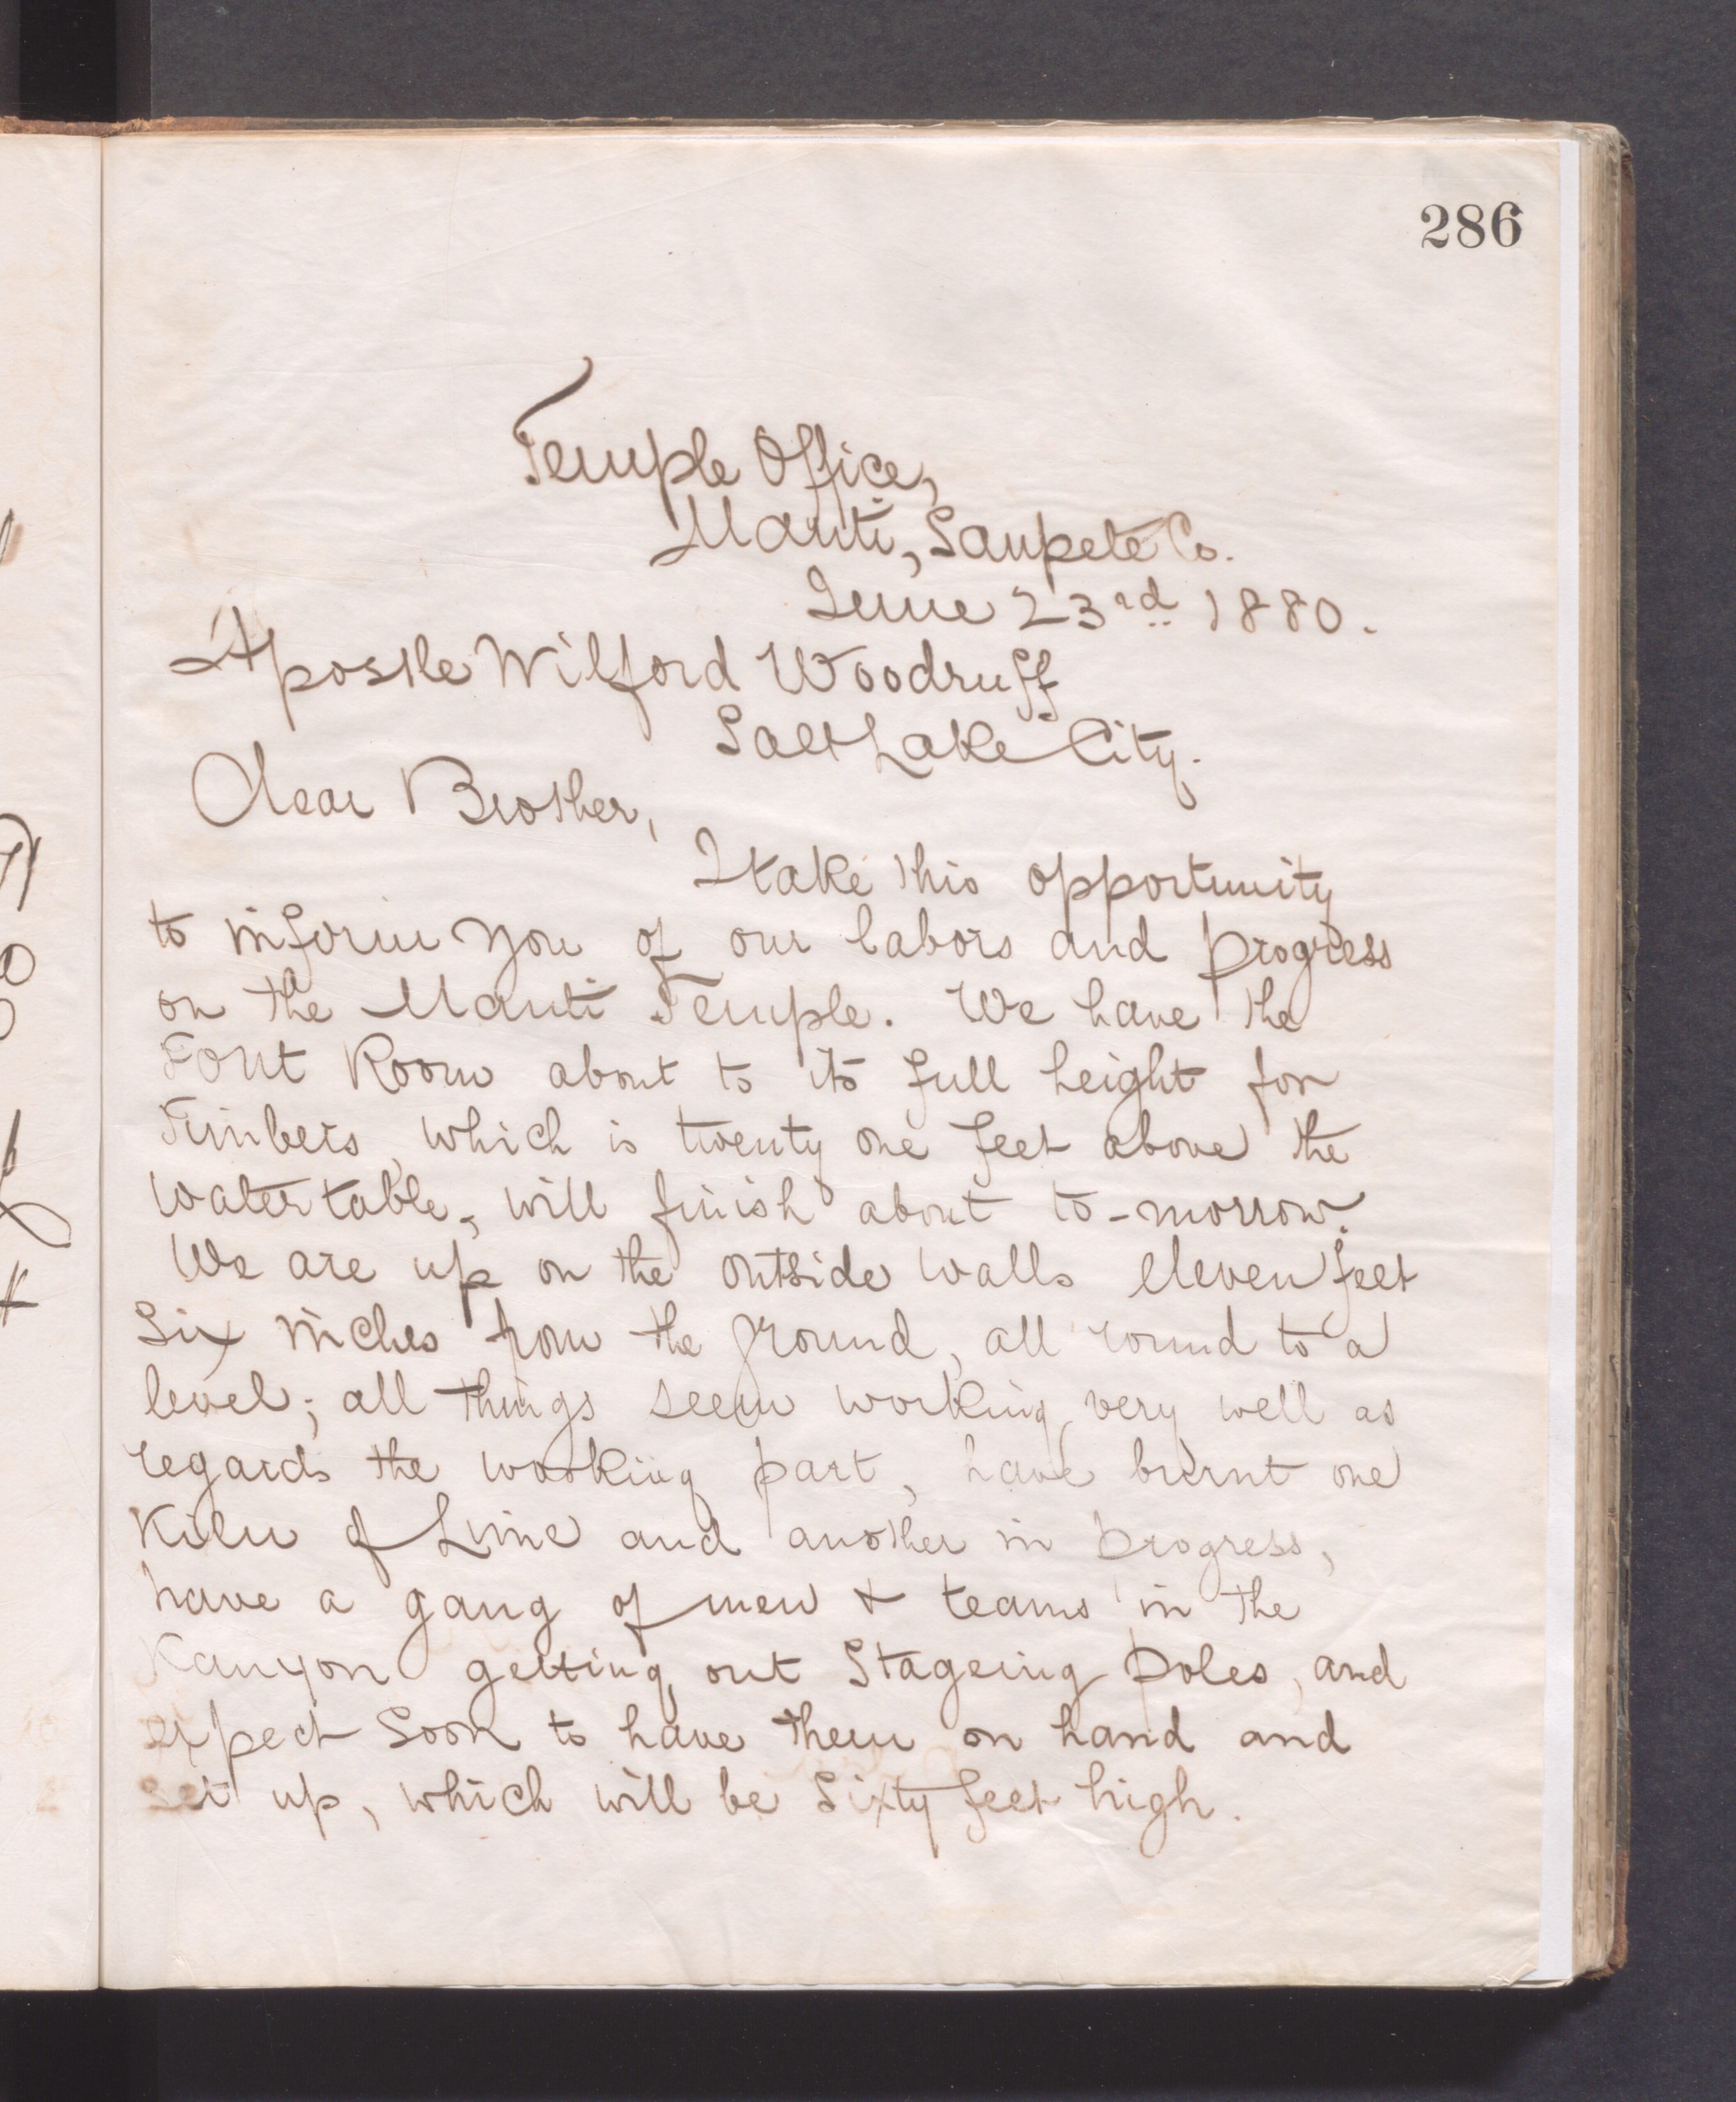 286
Temple Office,
Manti, Sanpete Co.
June 23rd 1880.
Apostle Wilford Woodruff
Salt Lake City.
Dear Brother,
I take this opportunity
to inform you of our labors and progress
on the Manti Temple. We have the
Font Room about to its full height for
Timbers, which is twenty one feet above the
water table, will finish about to-morrow.
We are up on the outside walls eleven feet
Six inches from the ground, all round to a
level; all things seem working very well as
regards the working part, have burnt one
Kiln of Lime and another in progress,
have a gang of men & teams in the
Kanyon getting out Stageing poles, and
expect soon to have them on hand and
set up, which will be Sixty feet high.